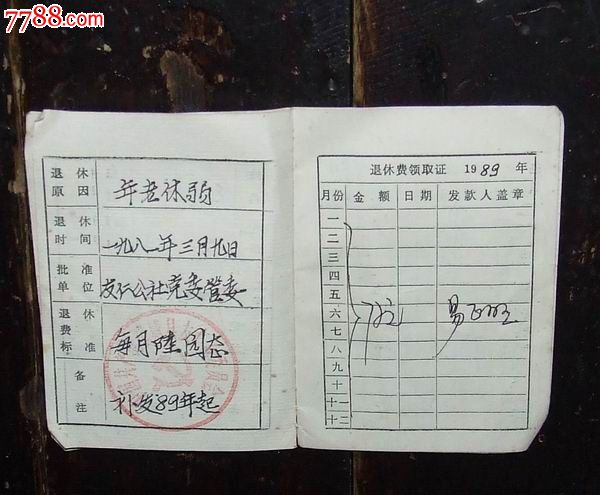 7788.com
退休原因 年老体弱
退休时间 一九八一年三月九日
批准单位 友仁公社党委管委
退休费标准 每月陆园
备注 补发89年起
退休费领取证 1989年
月份 金额 日期 发款人盖章
一
二
三
四
五
六
七
八
九
十
十一
十二